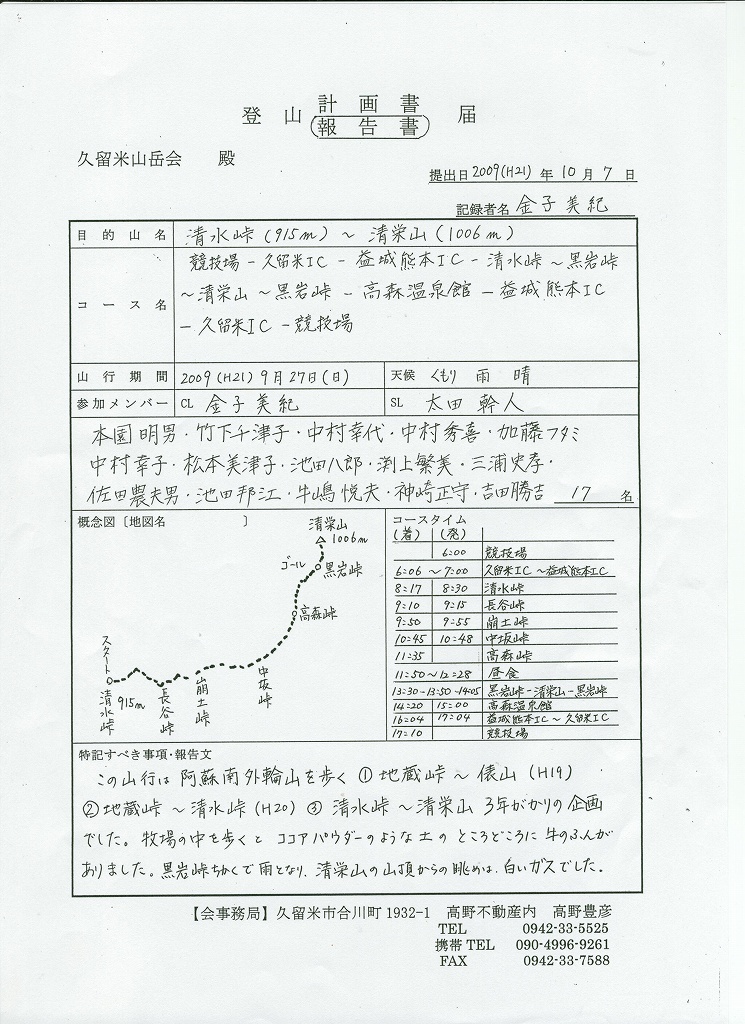 登山 計画書 届
報告書
久留米山岳会 殿
提出日 2009(H21) 年 10 月 7 日
記録者名 金子美紀
目的山名 清水峠(915m) ~ 清栄山(1006m)
コース名
競技場-久留米IC-益城熊本IC-清水峠~黒岩峠
~清栄山~黒岩峠-高森温泉館-益城熊本IC
-久留米IC-競技場
山行期間 2009(H21)9月27日(日) 天候 くもり 雨 晴
参加メンバー CL 金子美紀 SL 太田幹人
本園明男・竹下千津子・中村幸代・中村秀喜・加藤フタミ
中村幸子・松本美津子・池田八郎・渕上繁美・三浦史孝・
佐田農夫男・池田邦江・牛嶋悦夫・神崎正守・吉田勝吉 17名
概念図〔地図名 〕
清栄山
△1006m
ゴール
黒岩峠
高森峠
中坂峠
崩土峠
長谷峠
スタート
915m
清水峠
コースタイム
(着) (発)
6:00 競技場
6:06 ~7:00 久留米IC~益城熊本IC
8:17 8:30 清水峠
9:10 9:15 長谷峠
9:50 9:55 崩土峠
10:45 10:48 中坂峠
11:35 高森峠
11:50~12:28 昼食
13:30-13:50-14:05 黒岩峠-清栄山-黒岩峠
14:20 15:00 高森温泉館
16:04 17:04 益城熊本IC~久留米IC
17:10 競技場
特記すべき事項・報告文
この山行は 阿蘇南外輪山を歩く ①地蔵峠~俵山(H19)
②地蔵峠~清水峠(H20) ③清水峠~清栄山 3年がかりの企画
でした。牧場の中を歩くと ココアパウダーのような土の ところどころに 牛のふんが
ありました。黒岩峠ちかくで雨となり、清栄山の山頂からの眺めは、白いガスでした。
【会事務局】久留米市合川町1932-1 高野不動産内 高野豊彦
TEL 0942-33-5525
携帯TEL 090-4996-9261
FAX 0942-33-7588